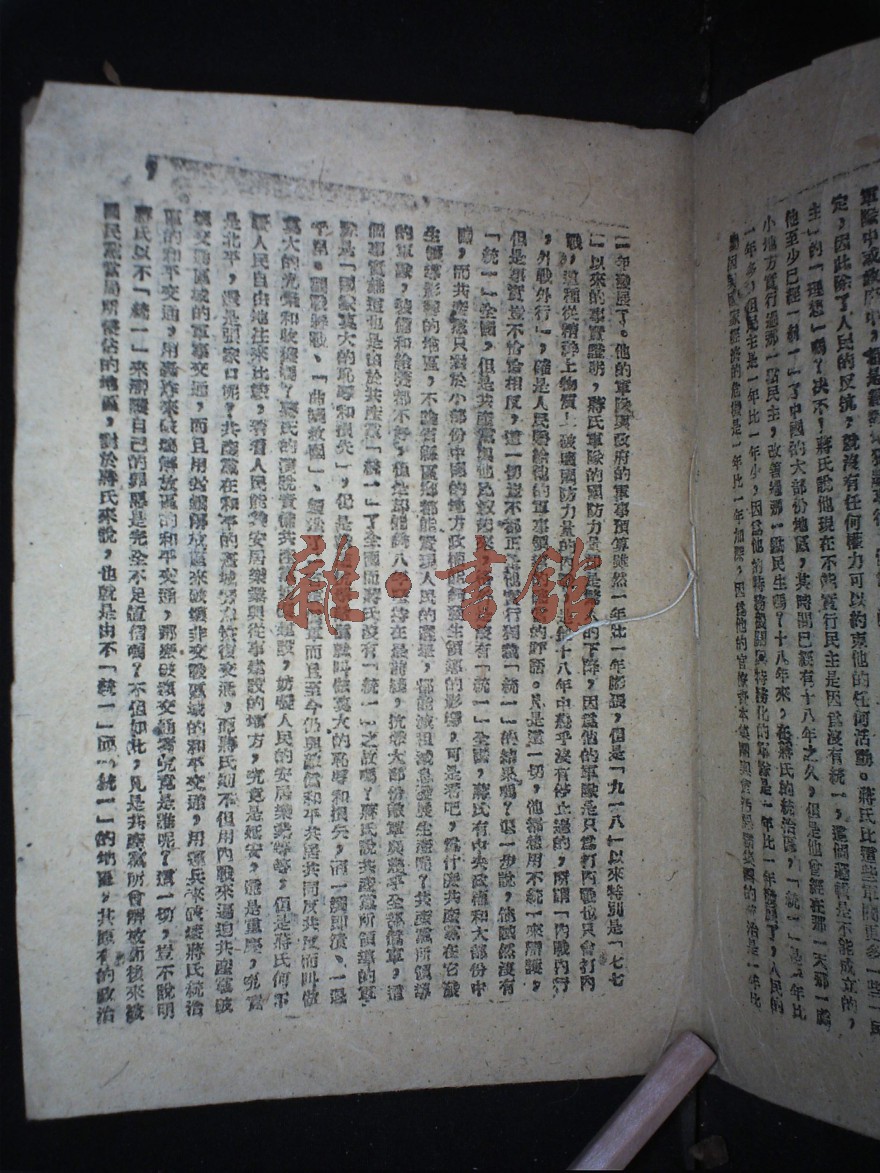 軍隊中或政府中，
定，因此除了人民的反抗，就沒有任何權力可以約束他的任何活動。蔣氏比這些軍閥更多一些「民
主」的「理想」嗎？决不！蔣氏說他現在不能實行民主是因爲沒有統一，這個邏輯是不能成立的，
他至少已經「統一」了中國的大部份地區，其時間已經有十八年之久，但是他曾經在那一天那一處
小地方實行過那一點民主，改善過那一點民生嗎？十八年來，在蔣氏的統治區，「統一」是一年比
一年多，但民主是一年比一年少，因爲他的特務機關與特務化的軍隊是一年比一年發展了，人民的
經濟的危機是一年比一年加深，因爲他的官僚資本集團與的統治是一年比
一年發展了。他的軍隊與政府的軍事預算雖然一年比一年膨漲，但是「九一八」以來特別是「七七
」以來的事實證明，蔣氏軍隊的國防力量却是驚人的下降，因爲他的軍隊是只當打內戰也只會打內
戰，這種從精神上物質上破壞國防力量的內戰，是十八年中幾乎沒有停止過的，所謂「內戰內行
，外戰外行」，確是人民賜給他的軍事的評語。只是這一切，他都想用不統一來辯護，
但是事實豈不恰恰相反，這一切豈不都正是他實行獨裁「統一」的結果嗎？退一步說，他旣然沒有
「統一」全國，但是共產黨與他比較起來，沒有「統一」全國，蔣氏有中央政權和大部份中
國，而共產黨只對於小部份中國的地方政權能夠發生領導的影響，可是看吧，爲什麽共產黨在它發
生領導影響的地區，不論省縣區鄉都能實現人民的選舉，都能減租減息發展生產呢？共產黨所領導
的軍隊，裝備和給養都不好，但是却能使八在是前綫，抗擊大部份敵軍與幾乎全部僞軍，這
個事實難道也是由於共產黨「統一」了全國而蔣氏沒有「統一」之故嗎？蔣氏說共產黨所領導的軍
隊是「國家莫大的恥辱和損失」，但是就叫做莫大的恥辱和損失，而一潰即潰、一退
千里。觀戰避戰、「曲綫救國」、而且至今仍與敵僞和平共居共同反共反而叫做
莫大的光榮和收穫嗎？蔣氏的演說責備共產黨，妨礙人民的安居樂業等等，但是蔣氏何不
讓人民自由地往來比較，看看人民能夠安居樂業與從事建設的地方，究竟是延安，還是重慶，究竟
是北平，還是張家口呢？共產黨在和平的舊城努力恢復交通，而蔣氏則不但用內戰來逼迫共產黨破
壞交通區域的軍事交通，而且用封鎖解放區來破壞非交戰區域的和平交通，用運兵來破壞蔣氏統治
區的和平交通，用轟炸來破壞解放區的和平交通，那麽破壞交通者究竟是誰呢？這一切，豈不說明
蔣氏以不「統一」來辯護自己的罪惡是完全不足置信嗎？不但如此，凡是共產黨所曾解放而後來被
國民黨當局所侵佔的地區，對於蔣氏來說，也就是由不「統一」而「統一」的地區，其應有的政治
雜·書館